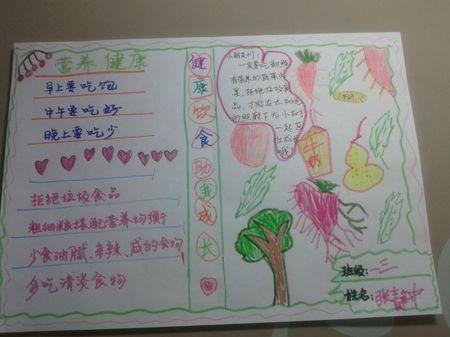 营养健康
早上要吃饱
中午要吃好
晚上要吃少
拒绝垃圾食品
粗细粮搭配营养均衡
少食油腻、辛辣、咸的食物
多吃清淡食物
健康饮食助我成长
小朋友们：
一定要吃新鲜
有营养的蔬菜水
果，拒绝垃圾食
品，才能在太阳光
的照射下大小朋们
一起茁
牛奶
班级：一、三
姓名：